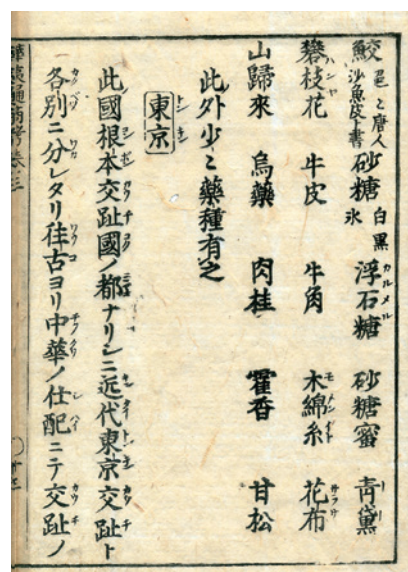 鮫 色々唐人沙魚皮ト書 砂糖 白黒氷 浮石糖 砂糖蜜 青黛
礬枝花 牛皮 牛角 木綿糸 花布
山歸來 烏藥 肉桂 藿香 甘松
此外少々藥種有之
東京
此國根本交趾國ノ都ナリシニ近代東京交趾ト
各別ニ分レタリ徃古ヨリ中華ノ仕配ニテ交趾ノ
華夷通商考巻三